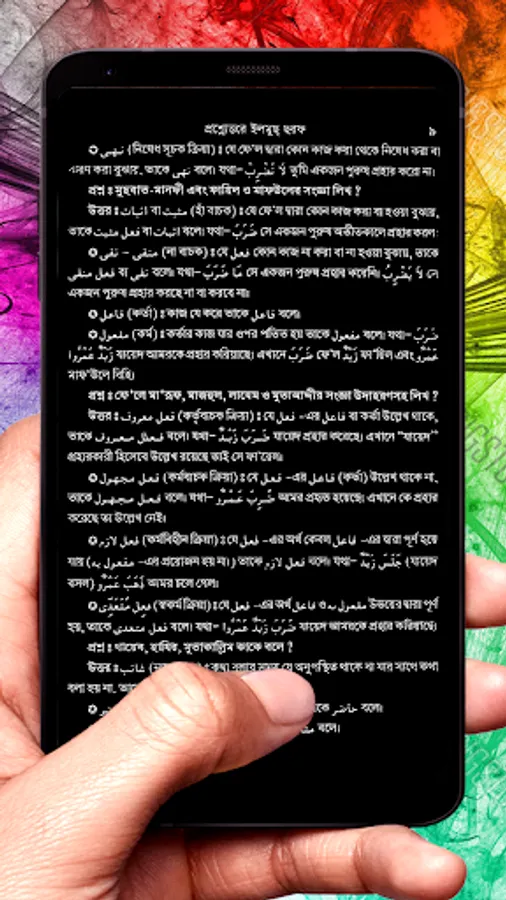 প্রশ্নোত্তরে ইলমুছ্ ছরফ ৯
✪ نهى (নিষেধ সূচক ক্রিয়া) : যে ফে'ল দ্বারা কোন কাজ করা থেকে নিষেধ করা বা
করা বুঝায়, তাকে نهى বলে। যথা- لَا تَضْرِبْ তুমি একজন পুরুষ প্রহার করো না।
প্রশ্ন : মুছবাত-মানফী এবং ফায়িল ও মাফউলের সংজ্ঞা লিখ ?
উত্তর : مثبت বা اثبات (হাঁ বাচক) : যে ফে'ল দ্বারা কোন কাজ করা বা হওয়া বুঝায়,
তাকে فعل مثبت বা اثبات বলে। যথা- ضَرَبَ সে একজন পুরুষ অতীতকালে প্রহার করল।
✪ نفى - منفى (না বাচক) : যে فعل কোন কাজ না করা বা না হওয়া বুঝায়, তাকে
فعل منفى বা نفى বলে। যথা- مَا ضَرَبَ সে একজন পুরুষ প্রহার করেনি। لَا يَضْرِبُ সে
একজন পুরুষ প্রহার করছে না বা করবে না।
✪ فاعل (কর্তা) : কাজ যে করে তাকে فاعل বলে।
✪ مفعول (কর্ম) : কর্তার কাজ যার ওপর পতিত হয় তাকে مفعول বলে। যথা- ضَرَبَ
زَيْدٌ عَمْرًوا যায়েদ আমরকে প্রহার করিয়াছে। এখানে ضَرَبَ ফে'ল زَيْدٌ ফা'য়িল এবং عَمْرًوا
মাফ'উলে বিহি।
প্রশ্ন : ফে'লে মা'রূফ, মাজহুল, লাযেম ও মুতাআদ্দীর সংজ্ঞা উদাহরণসহ লিখ ?
উত্তর : فعل معروف (কর্তৃবাচক ক্রিয়া) : যে فعل -এর فاعل বা কর্তা উল্লেখ থাকে,
তাকে فعل معروف বলে। যথা- ضَرَبَ زَيْدٌ যায়েদ প্রহার করেছে। এখানে “যায়েদ”
প্রহারকারী হিসেবে উল্লেখ রয়েছে তাই সে ফা'য়েল।
✪ فعل مجهول (কর্মবাচক ক্রিয়া) : যে فعل -এর فاعل (কর্তা) উল্লেখ থাকে না,
তাকে فعل مجهول বলে। যথা- ضُرِبَ عَمْرٌو আমর প্রহৃত হয়েছে। এখানে কে প্রহার
করেছে তা উল্লেখ নেই।
✪ فعل لازم (কর্মবিহীন ক্রিয়া) : যে فعل -এর অর্থ কেবল فاعل -এর দ্বারা পূর্ণ হয়ে
যায় (مفعول به -এর প্রয়োজন হয় না।) তাকে فعل لازم বলে। যথা- جَلَسَ زَيْدٌ (যায়েদ
বসল) ذَهَبَ عَمْرٌو আমর চলে গেল।
✪ فعل مُتَعَدِّى (স্বকর্ম ক্রিয়া) : যে فعل -এর অর্থ فاعل ও مفعول به উভয়ের দ্বারা পূর্ণ
হয়, তাকে فعل متعدى বলে। যথা- ضَرَبَ زَيْدٌ عَمْرًوا যায়েদ আমরকে প্রহার করিয়াছে।
প্রশ্ন : গায়েব, হাযির, মুতাকাল্লিম কাকে বলে ?
উত্তর : غائب কথা বলার সময় যে অনুপস্থিত থাকে বা যার সাথে কথা
বলা হয় না,
✪ حاضر বলে।
বলে।